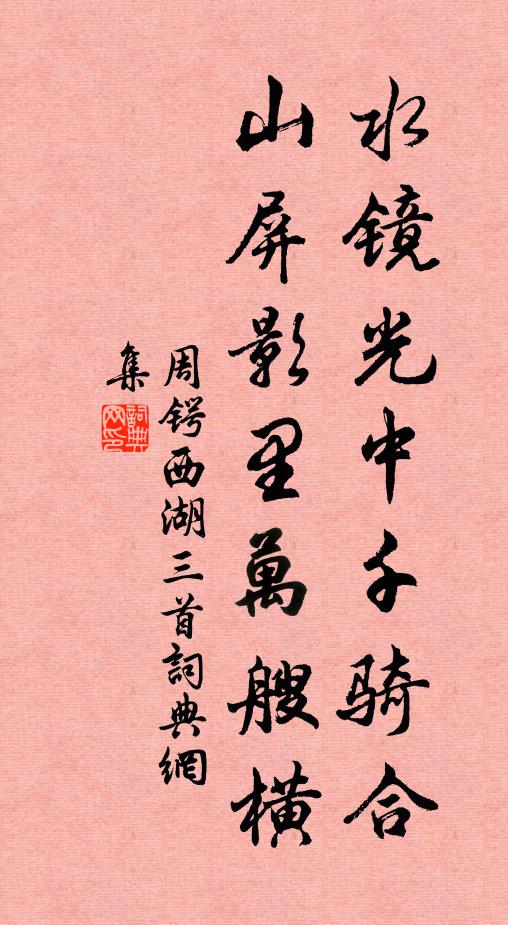 水镜光中千骑合
山屏影里萬艘横
周锷西湖三首詞典網
集
詞典网印